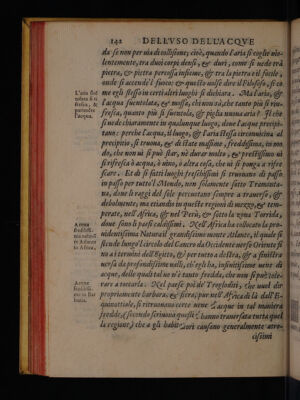 142 DELL'VSO DELL'ACQVE
da se non per via de collisione; cioè, quando l'aria si coglie vio-
lentemente, tra duoi corpi densi, & duri, come si vede trà
pietra, & pietra percossa insieme, & tra la pietra e il fucile,
onde si accende il fuoco; & questo volse dire il Filosofo, si co
me egli stesso in certi altri luoghi si dichiara. Ma l'aria, &
l'acqua suentolata, & mossa, che non sò, che tanto più si rin-
fresca, quanto più si suentola, & piglia nuoua aria? Il che
si vede chiaramente in quei luoghi, doue l'acque precipi-
tano: perche l'acqua, il luogo, & l'aria stessa circonuicina al
precipitio, si troua, & di state massime, freddissima, in mo-
do, che non ui si può star, nè dorar molto, & prestissimo ui
si rifresca ò acqua, ò uino, ò altra cosa, che ui si ponga à rifre
scare. Et di sì fatti luoghi freschissimi si trouano di passo
in passo per tutto l'Mondo, non solamente sotto Tramonta-
na, doue li raggi del sole percuotano sempre a trauerso, &
debolmente, ma etiandio in queste regioni di mezzo, & tem-
perate, nell'Africa, & nel Perù, & sotto la zona Torrida,
doue sono di paesi caldissimi. Nell'Africa ha collocato la pro-
uidentissima Natura il grandissimo monte Atlante, il quale di
stende lungo l'Circolo del Cancro da Occidente uerso Oriente si
no a i termini dell'Egitto, & per tutto a destra, & a sinistra
uersa da profondissime ualli, ch'egli ha, infinitissime uene di
acque, delle quali talune n'è tanto fredda, che non si può tole-
rare a toccarla. Nel paese poi de' Trogloditi, che vuol dir
propriamente barbara, & fiera, pur nell'Africa di là dall'E-
quinottiale, si ritrouano certe uene d'acque in tal maniera
fredde, (secondo scriuono questi c'hanno trauersata tutta quel
la regione) che a gli habitatori causano generalmente atro-
cissimi
L'aria suё
tolata si ri
fresca, &
parimente
l'acqua.
Acqua
freddissi-
ma natiua
in Atlante
in Africa.
Acque
freddissi-
me in Bar
baria.